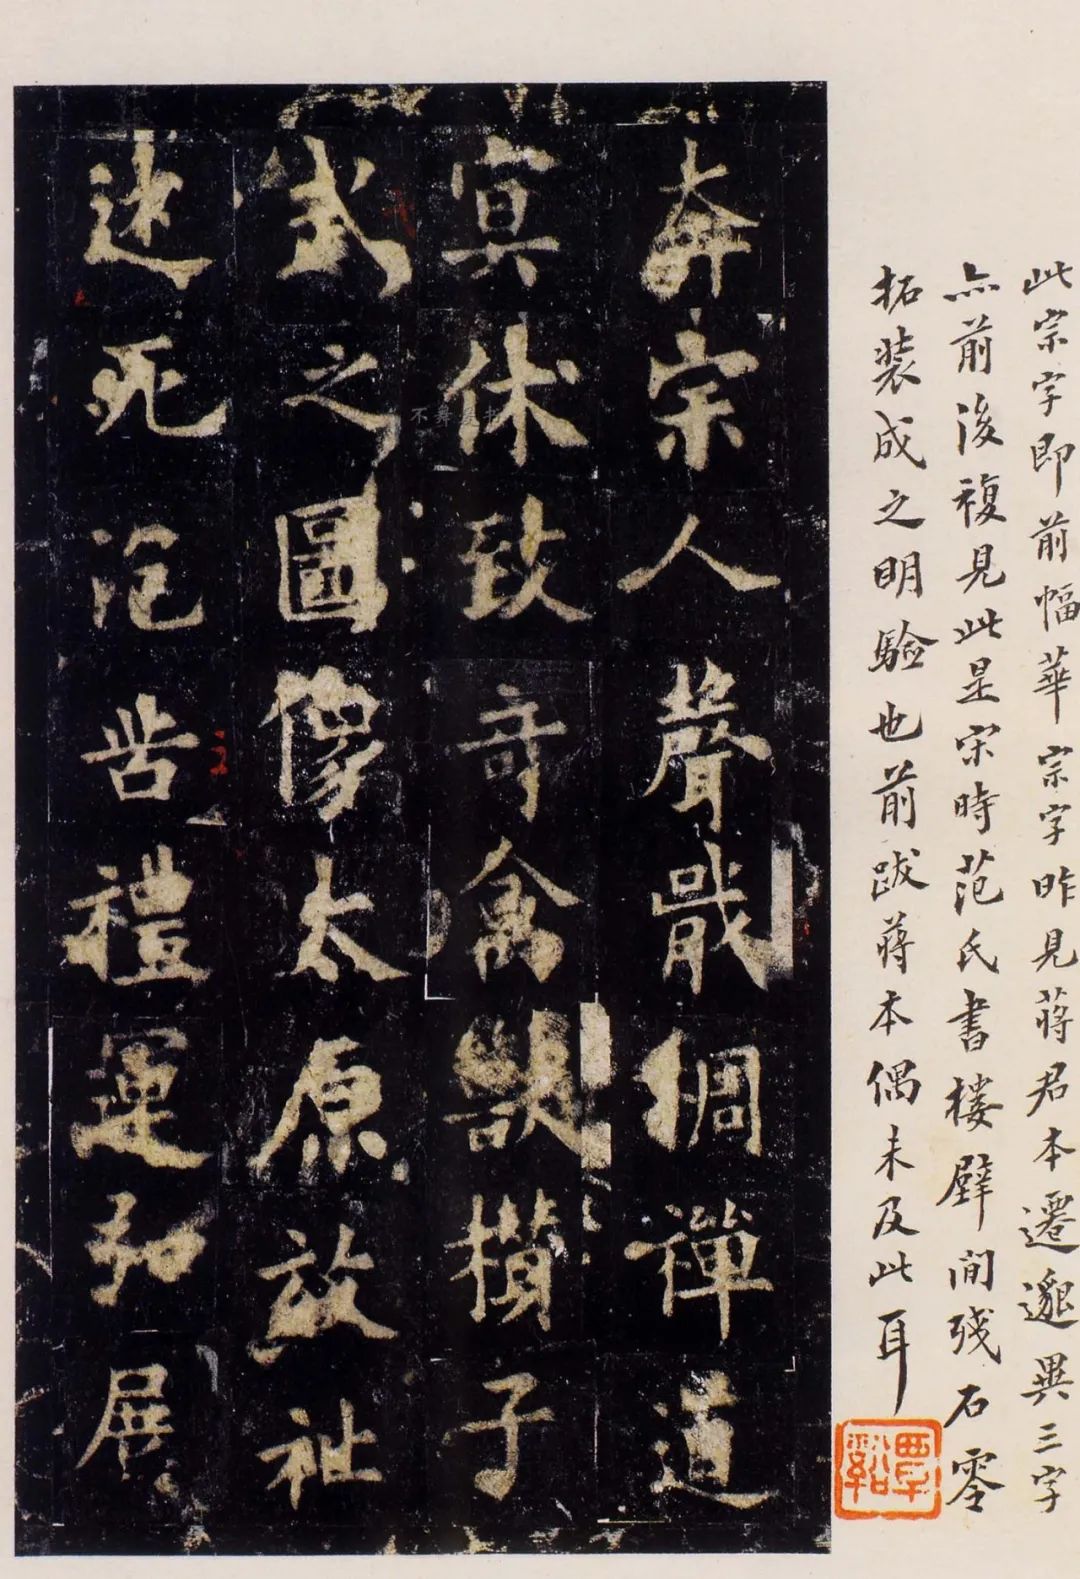 此宗字即前幅華宗字昨見蔣君本遷邈異三字
亦前後複見此是宋時范氏書樓壁間殘石零
拓裝成之明驗也前跋蔣本偶未及此耳
覃谿
奔宗人聲戢稠禪道
冥休致奇禽獸攢子
武之圖像太原放祉
迷死泡皆禮運弘展